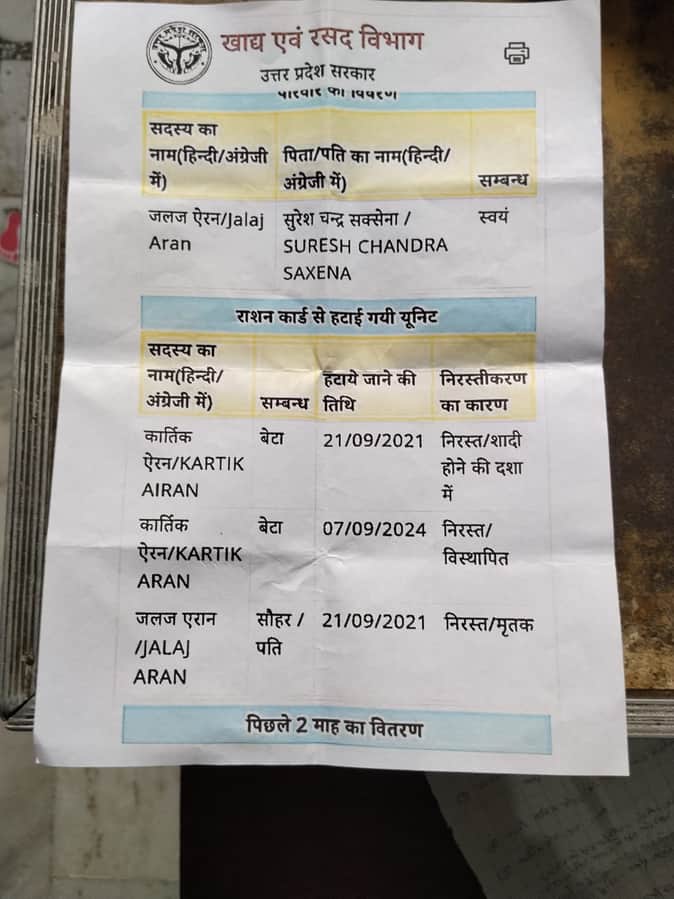 खाद्य एवं रसद विभाग
उत्तर प्रदेश सरकार
परिवार का विवरण
सदस्य का नाम(हिन्दी/अंग्रेजी में)
पिता/पति का नाम(हिन्दी/अंग्रेजी में)
सम्बन्ध
जलज ऐरन/Jalaj Aran
सुरेश चन्द्र सक्सेना / SURESH CHANDRA SAXENA
स्वयं
राशन कार्ड से हटाई गयी यूनिट
सदस्य का नाम(हिन्दी/अंग्रेजी में)
सम्बन्ध
हटाये जाने की तिथि
निरस्तीकरण का कारण
कार्तिक ऐरन/KARTIK AIRAN
बेटा
21/09/2021
निरस्त/शादी होने की दशा में
कार्तिक ऐरन/KARTIK ARAN
बेटा
07/09/2024
निरस्त/विस्थापित
जलज एरान /JALAJ ARAN
सौहर / पति
21/09/2021
निरस्त/मृतक
पिछले 2 माह का वितरण